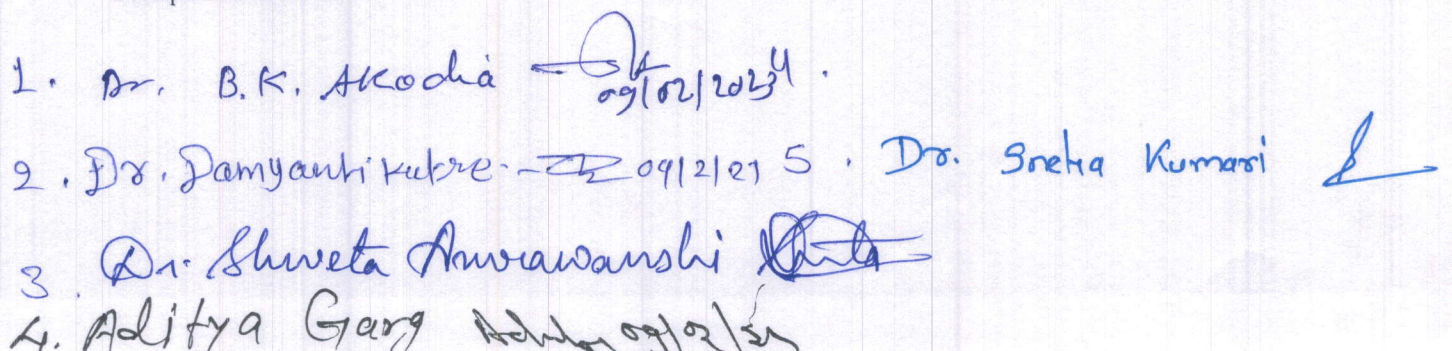 1. Dr. B.K. Akodia 09/02/2023
2. Dr. Damyanti 09/2/23 5. Dr. Sneha Kumari
3. Dr. Shweta
4. Aditya Garg 09/02/23